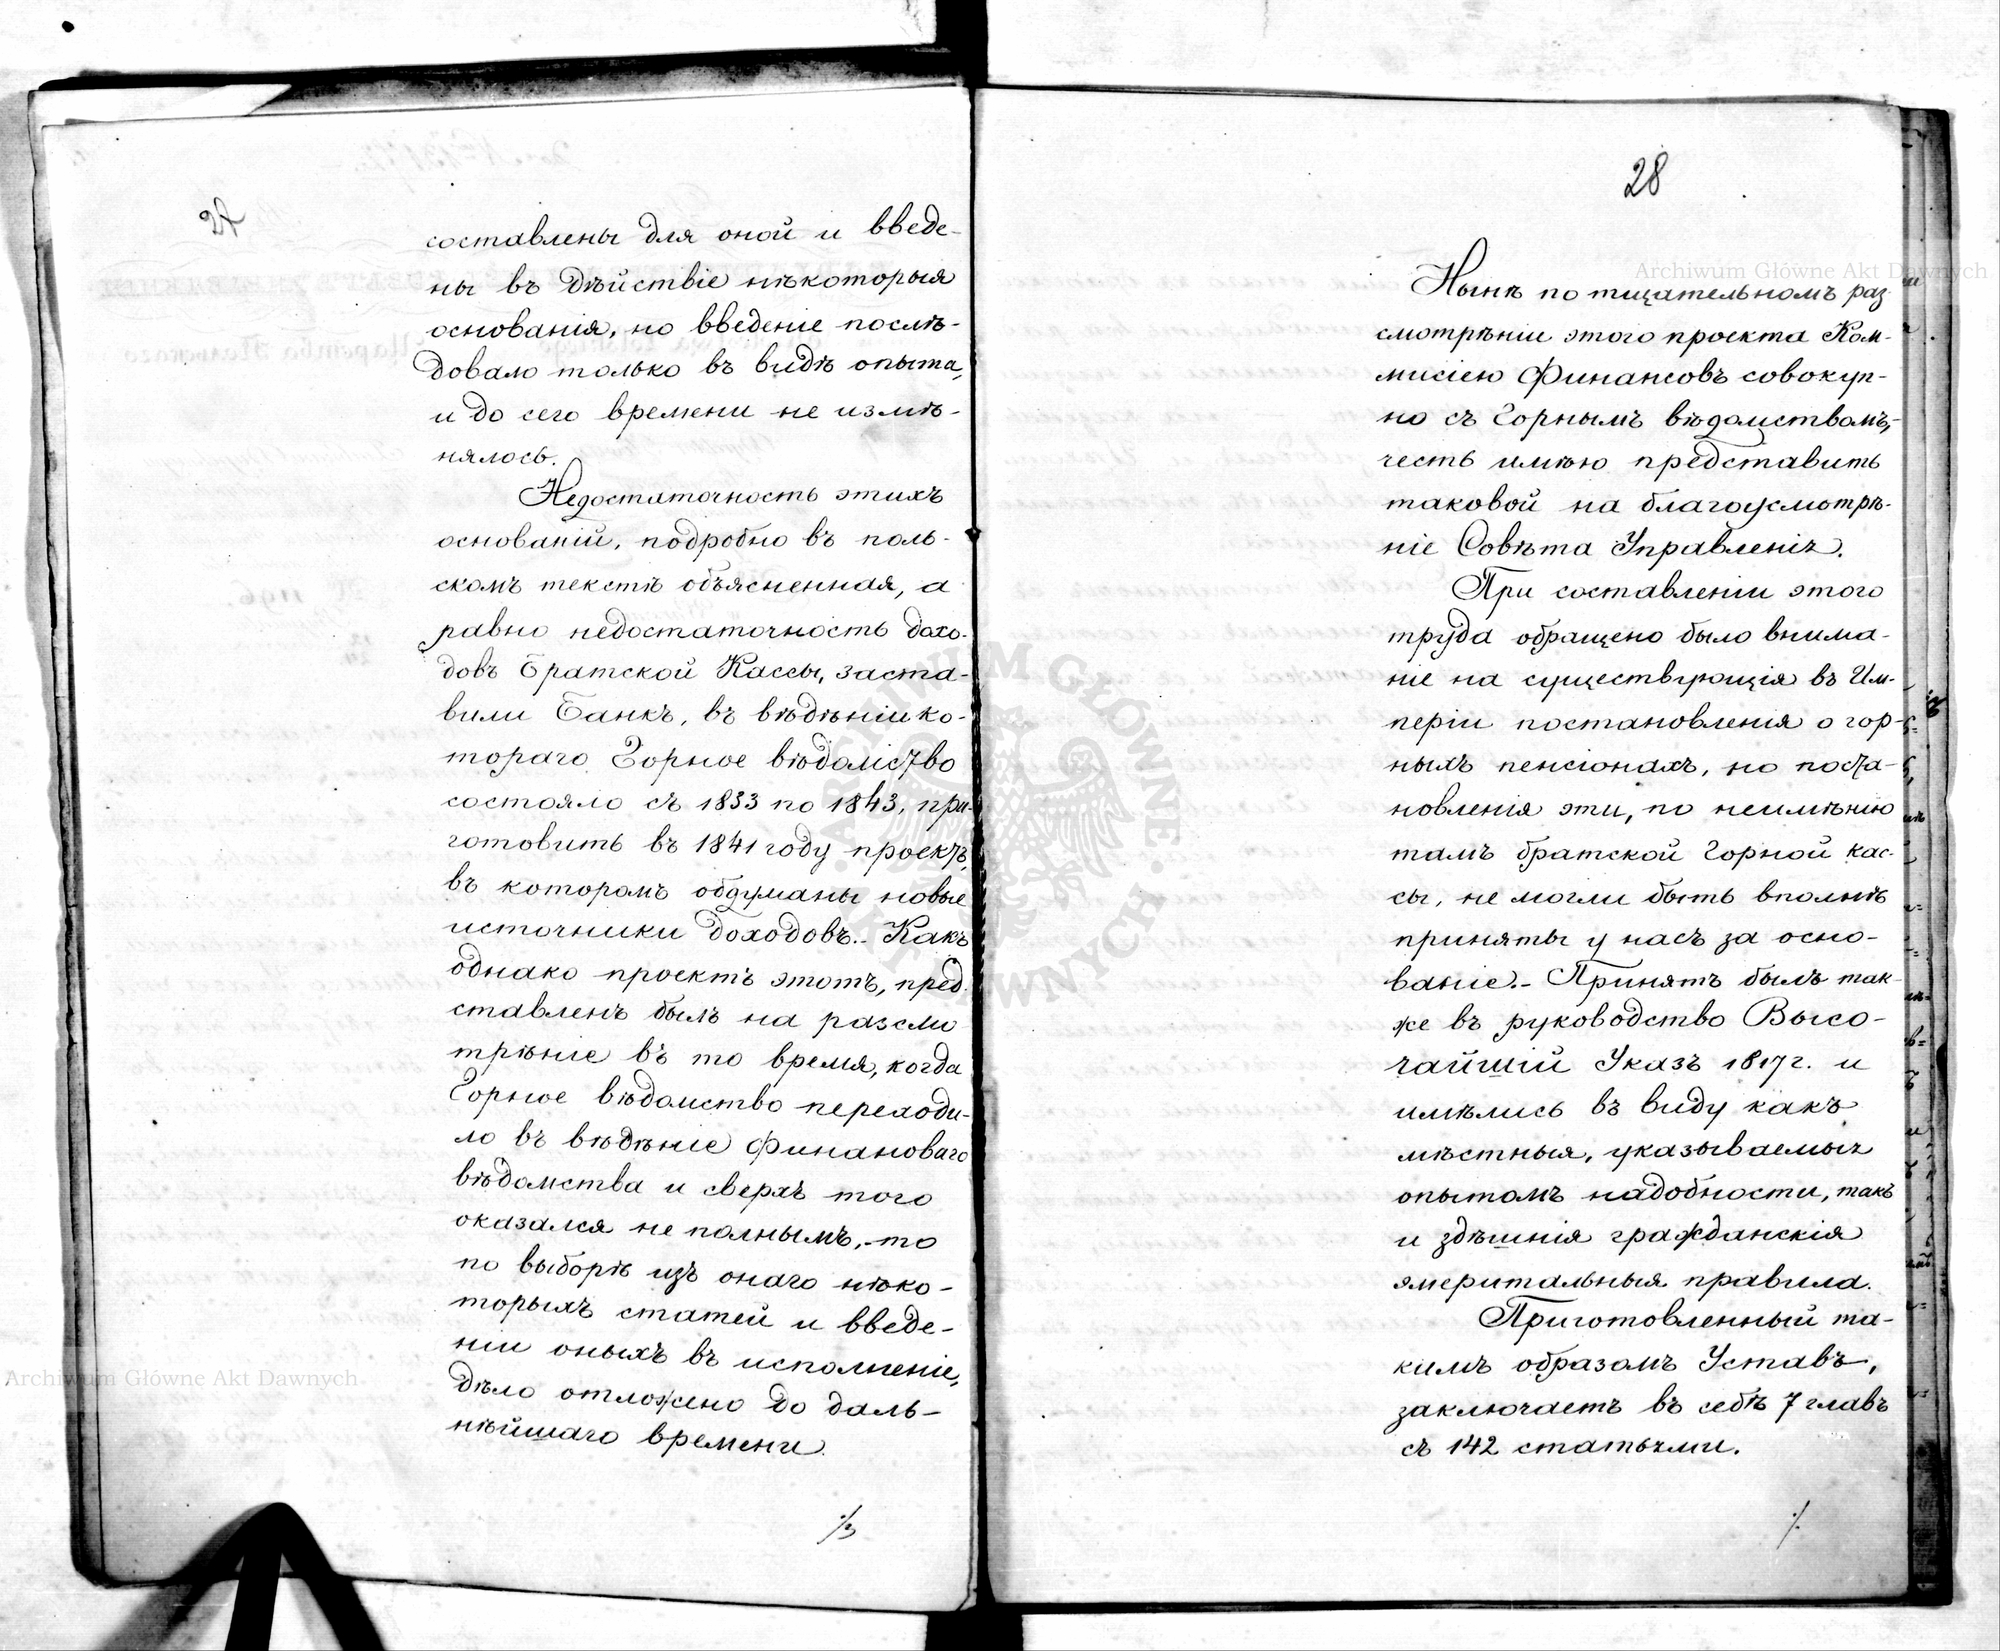 составлены для оной и введе-
ны въ дѣйствіе нѣкоторыя
основанія, но введеніе послѣ-
довало только въ видѣ опыта,
и до сего времени не измѣ-
нялось.
Недостаточность этихъ
основаній, подробно въ поль-
скомъ текстѣ объясненная, а
равно недостаточность дохо-
довъ Братской Кассы, заста-
вили Банкъ, въ вѣдѣніи ко-
тораго Горное вѣдомство
состояло съ 1833 по 1843, при-
готовить въ 1841 году проектъ,
въ которомъ обдуманы новые
источники доходовъ.- Какъ
однако проектъ этотъ, пред-
ставленъ былъ на разсмо
трѣніе въ то время, когда
Горное вѣдомство переходи-
ло въ вѣдѣніе Финансоваго
вѣдомства и сверхъ того
оказался не полнымъ,-то
по выборѣ изъ онаго нѣко-
торыхъ статей и введе-
ніи оныхъ въ исполненіе,
дѣло отложено до даль-
нѣйшаго времени.
28
Нынѣ по тщательномъ раз
смотрѣніи этого проекта Ком-
мисіею Финансовъ совокуп-
но съ Горнымъ вѣдомствомъ,
честь имѣю представить
таковой на благоусмотрѣ-
ніе Совѣта Управленія.
При составленіи этого
труда обращено было внима-
ніе на существующія въ Им-
періи постановленія о гор-
ныхъ пенсіонахъ, но поста-
новленія эти, по неимѣнію
тамъ братской Горной кас-
сы, не могли быть вполнѣ
приняты у насъ за осно-
ваніе.- Принятъ былъ так-
же въ руководство Высо-
чайшій Указъ 1817 г. и
имѣлись въ виду какъ
мѣстныя, указываемыя
опытомъ надобности, такъ
и здѣшнія гражданскія
эмеритальныя правила.
Приготовленный та-
кимъ образомъ Уставъ,
заключаетъ въ себѣ 7 главъ
съ 142 статьями.
Archiwum Główne Akt Dawnych
Archiwum Główne Akt Dawnych